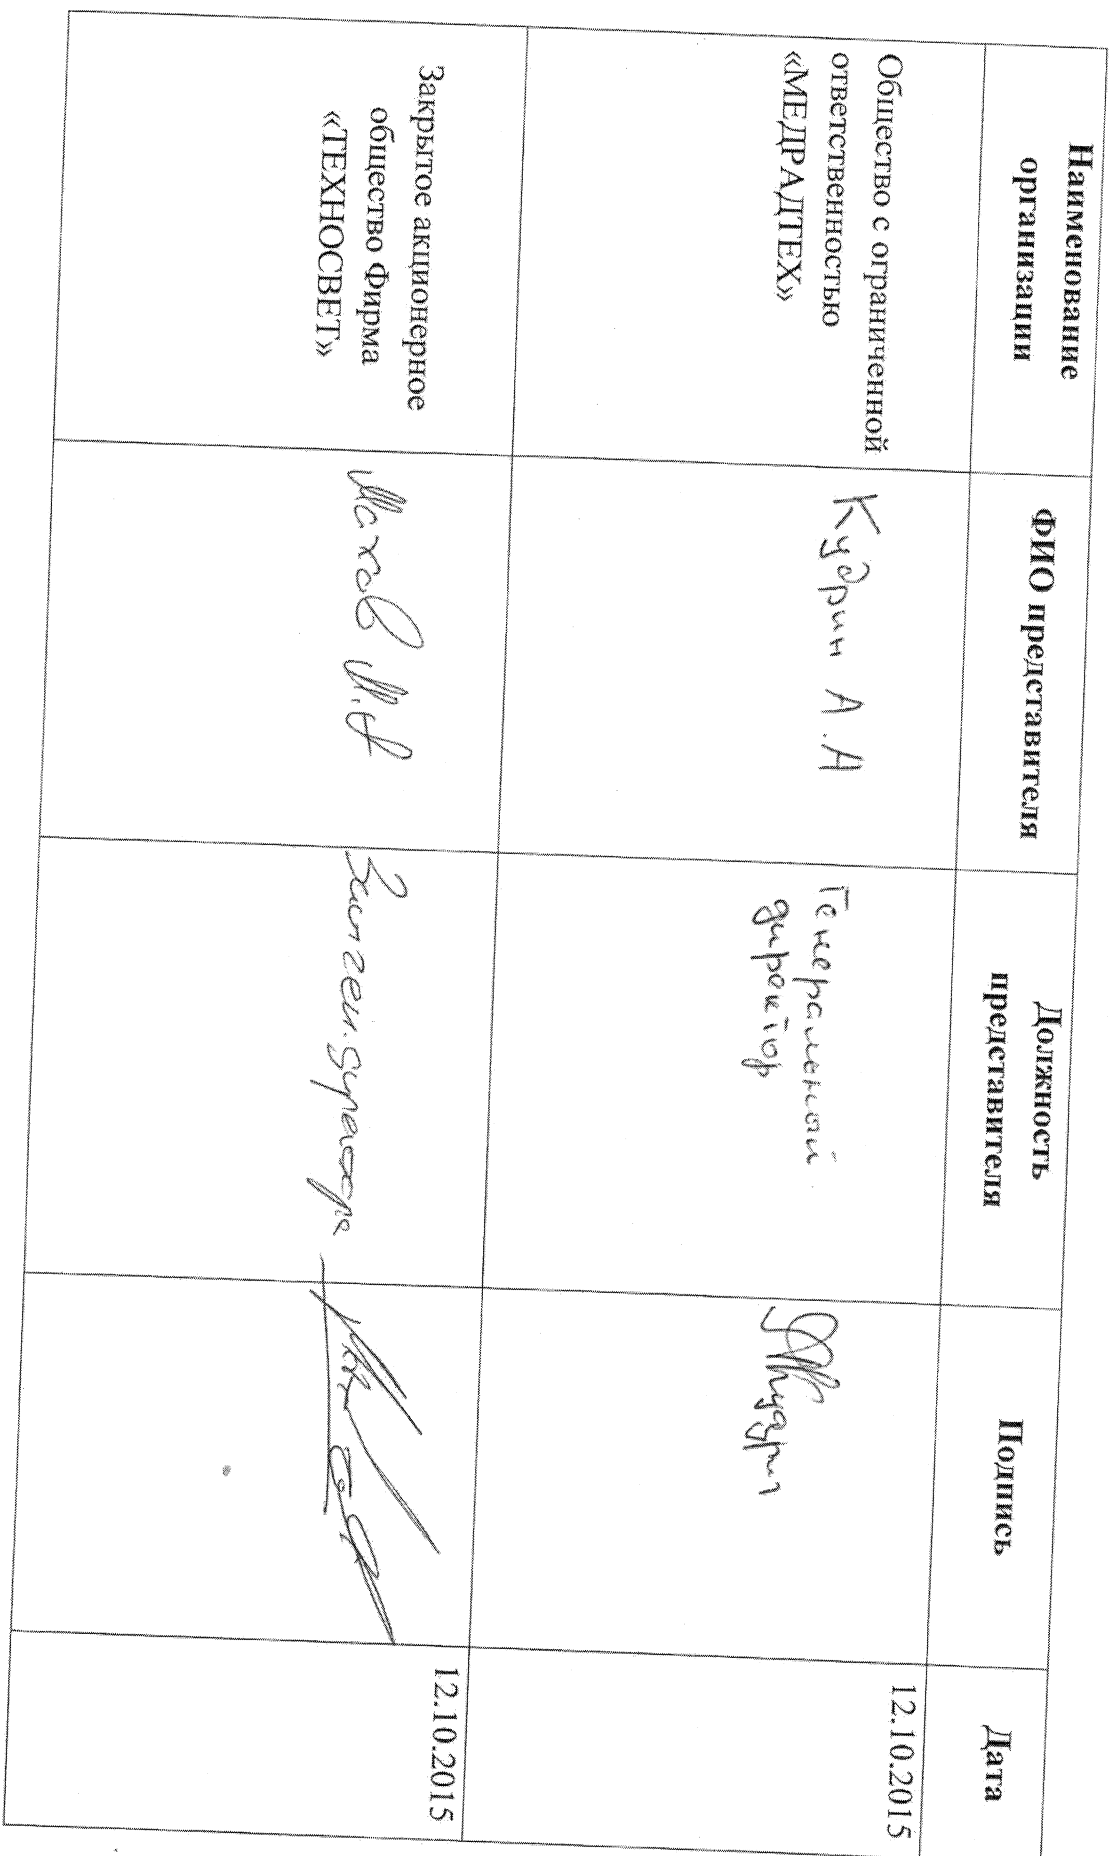 Наименование
организации
ФИО представителя
Должность
представителя
Подпись
Дата
Общество с ограниченной
ответственностью
«МЕДРАДТЕХ»
Кудрин А.А
Генеральный
директор
12.10.2015
Закрытое акционерное
общество Фирма
«ТЕХНОСВЕТ»
Махов М.
Зам ген. директора
12.10.2015